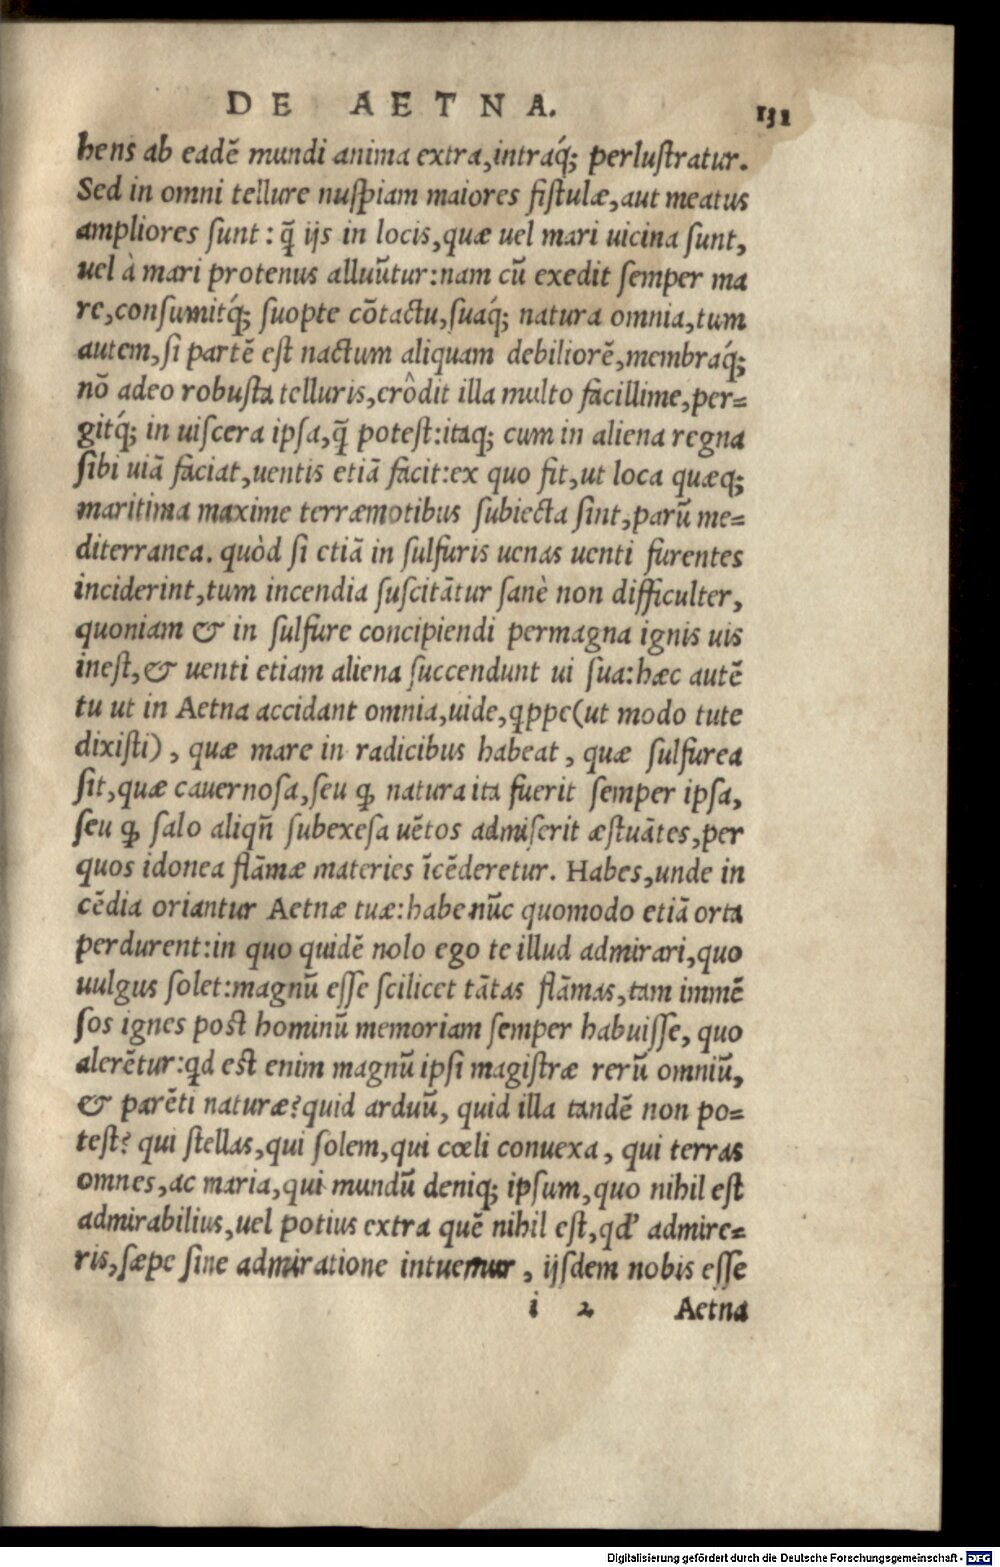 DE AETNA. 131
hens ab eadē mundi anima extra,intraq́; perluſtratur.
Sed in omni tellure nuſpiam maiores fiſtulæ,aut meatus
ampliores ſunt: q̄ ijs in locis,quæ uel mari uicina ſunt,
uel à mari protenus alluūtur:nam cū exedit ſemper ma
re,conſumitq́; ſuopte cōtactu,ſuaq́; natura omnia,tum
autem,ſi partē eſt nactum aliquam debiliorē,membraq́;
nō adeo robuſta telluris,erôdit illa multo facillime,per=
gitq́; in uiſcera ipſa,q̄ poteſt:itaq; cum in aliena regna
ſibi uiā faciat,uentis etiā facit:ex quo fit,ut loca quæq;
maritima maxime terræmotibus ſubiecta ſint,parū me=
diterranea. quòd ſi etiā in ſulfuris uenas uenti furentes
inciderint,tum incendia ſuſcitātur ſanè non difficulter,
quoniam & in ſulfure concipiendi permagna ignis uis
ineſt,& uenti etiam aliena ſuccendunt ui ſua:hæc autē
tu ut in Aetna accidant omnia,uide,qppe(ut modo tute
dixiſti), quæ mare in radicibus habeat, quæ ſulfurea
ſit,quæ cauernoſa,ſeu ꝙ natura ita fuerit ſemper ipſa,
ſeu ꝙ ſalo aliqn̄ ſubexeſa uētos admiſerit æſtuātes,per
quos idonea flāmæ materies īcēderetur. Habes,unde in
cēdia oriantur Aetnæ tuæ:habe nūc quomodo etiā orta
perdurent:in quo quidē nolo ego te illud admirari,quo
uulgus ſolet:magnū eſſe ſcilicet tātas flāmas,tam immē
ſos ignes poſt hominū memoriam ſemper habuiſſe, quo
alerētur:qd eſt enim magnū ipſi magiſtræ rerū omniū,
& parēti naturæ?quid arduū, quid illa tandē non po=
teſt? qui ſtellas,qui ſolem,qui cœli conuexa, qui terras
omnes,ac maria,qui mundū deniq; ipſum,quo nihil eſt
admirabilius,uel potius extra quē nihil eſt,qd' admire=
ris,ſæpe ſine admiratione intuemur, ijſdem nobis eſſe
i 2 Aetna
Digitalisierung gefördert durch die Deutsche Forschungsgemeinschaft - DFG